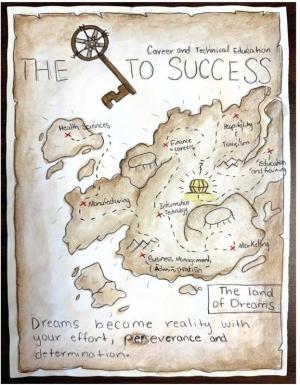 Career and Technical Education
THE TO SUCCESS
Health Sciences
Hospitality
Tourism
Finance
careers
Education
and training
Manufacturing
Information
Technology
Marketing
Business Management
Administration
The land
of Dreams
Dreams become reality with
your effort, perseverance and
determination.